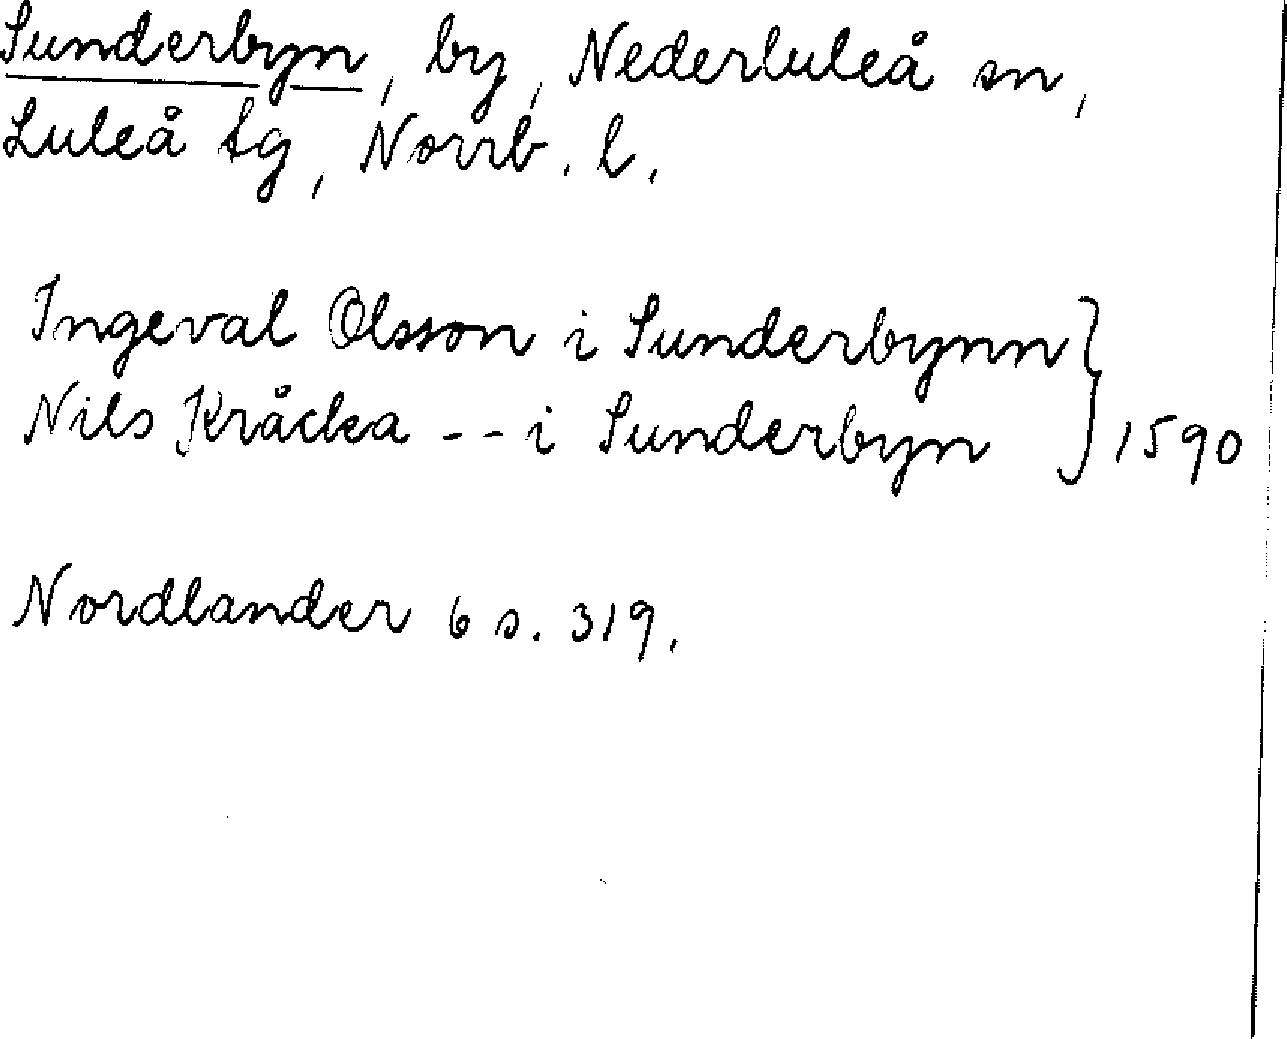 Sunderbyn, by, Nederluleå sn,
Luleå tg, Norrb. l.
Ingeval Olsson i Sunderbynn
Nils Kråcka -- i Sunderbyn } 1590
Nordlander 6 s. 319.